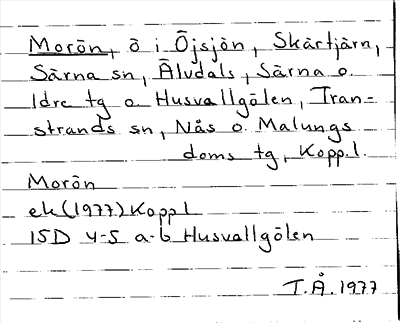 Morön, ö i Öjsjön, Skärtjärn,
Särna sn, Älvdals, Särna o.
Idre tg o Husvallgölen, Tran=
strands sn, Nås o. Malungs
doms tg, Kopp.l.
Morön
ek (1977) Kopp l
15D 4-5 a-b Husvallgölen
T.Å. 1977